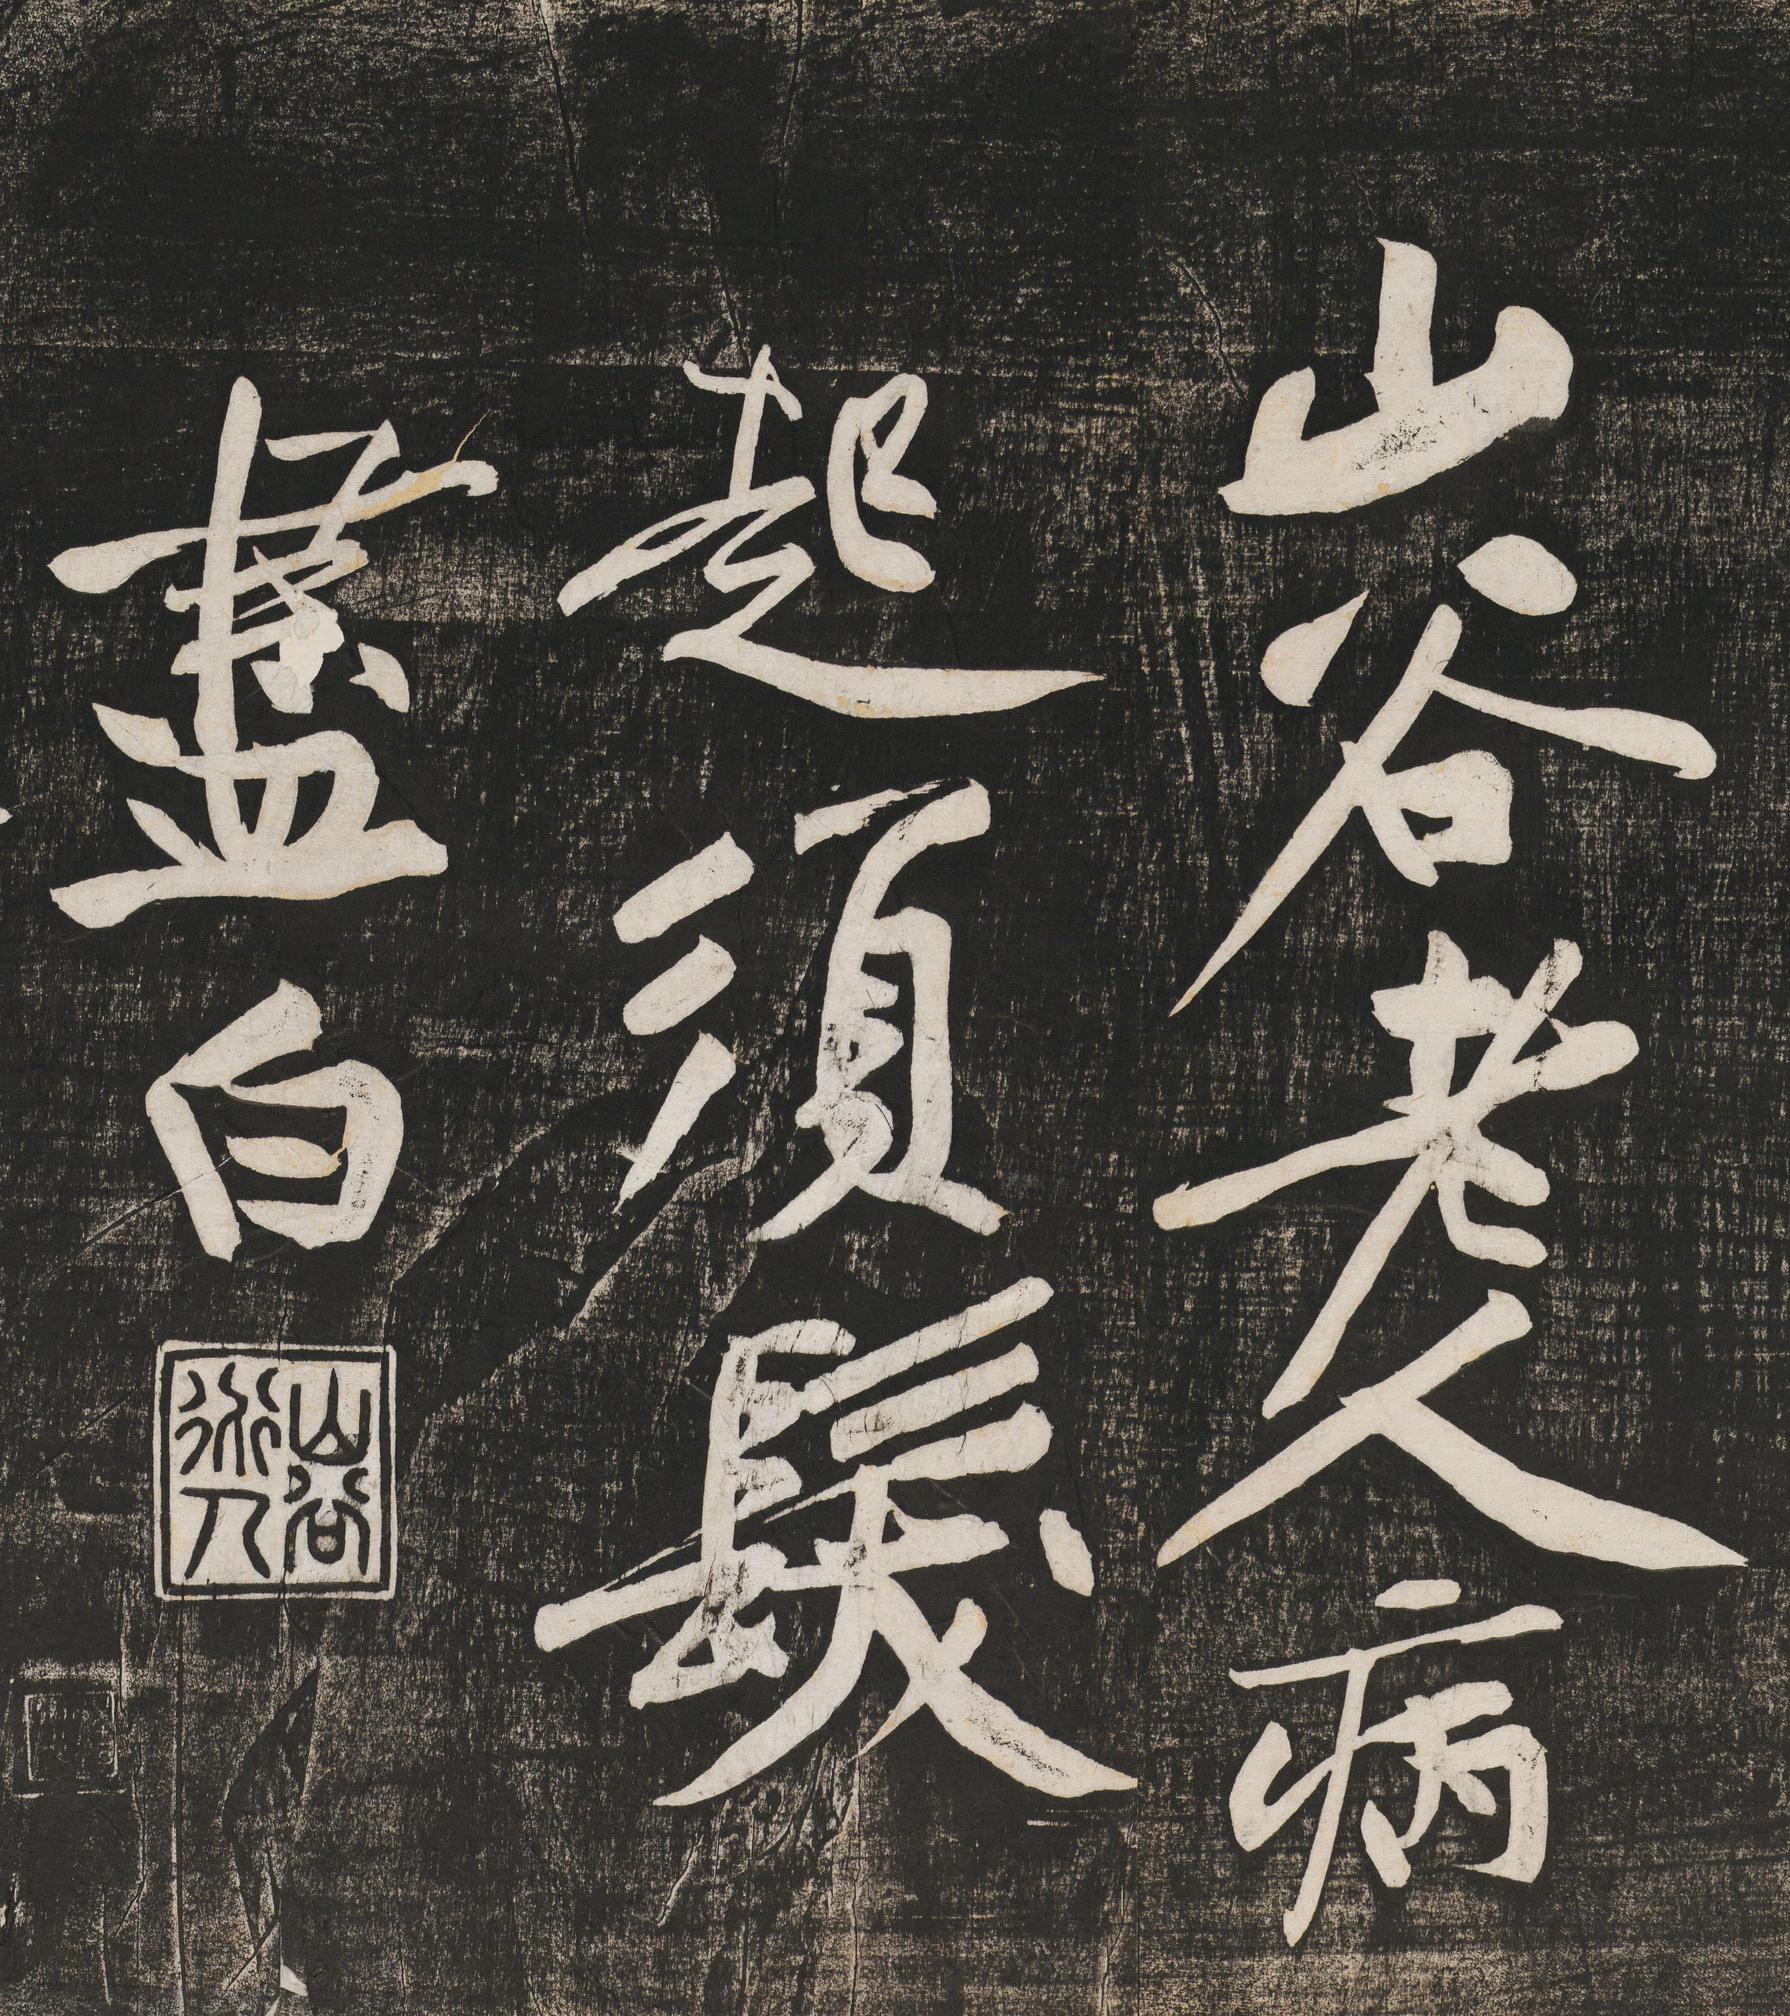 山谷老人病
起須髮
盡白
山谷
道人